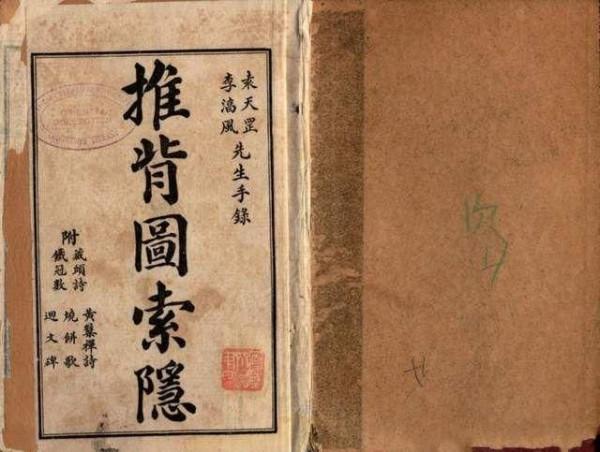 袁天罡
李淳風
先生手錄
推背圖索隱
附
藏頭詩
鐵冠數
黃蘗禪詩
燒餅歌
迴文碑